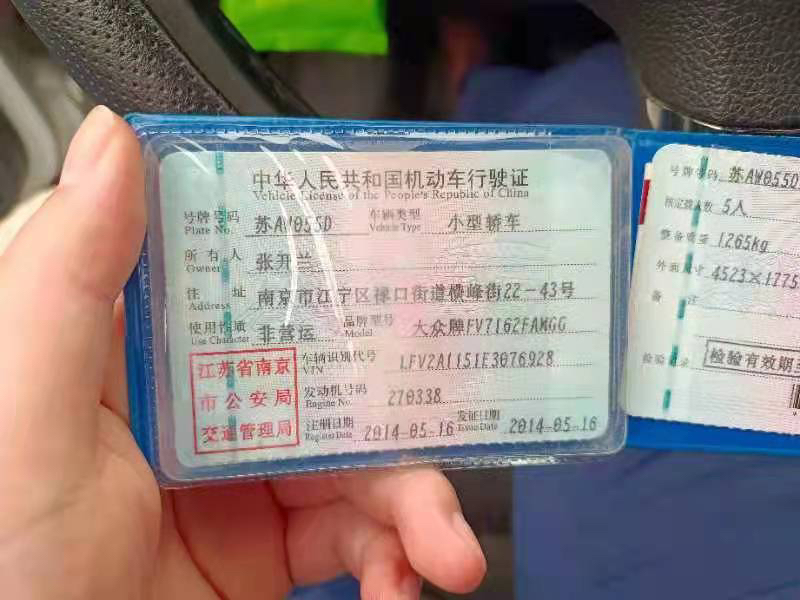 中华人民共和国机动车行驶证
Vehicle License of the People's Republic of China
号牌号码 苏AW055D 车辆类型 小型轿车
Plate No. Vehicle Type
所有人 张开兰
Owner
住址 南京市江宁区禄口街道横峰街22-43号
Address
使用性质 非营运 品牌型号 大众牌FV7162FAMGG
Use Character Model
江苏省南京
市公安局
交通管理局
车辆识别代号 LFV2A1151E3076928
VIN
发动机号码 270338
Engine No.
注册日期 2014-05-16 发证日期 2014-05-16
Register Date Issue Date
号牌号码 苏AW055D
核定载人数 5人
整备质量 1265kg
外廓尺寸 4523×1775
备注
检验记录 检验有效期至